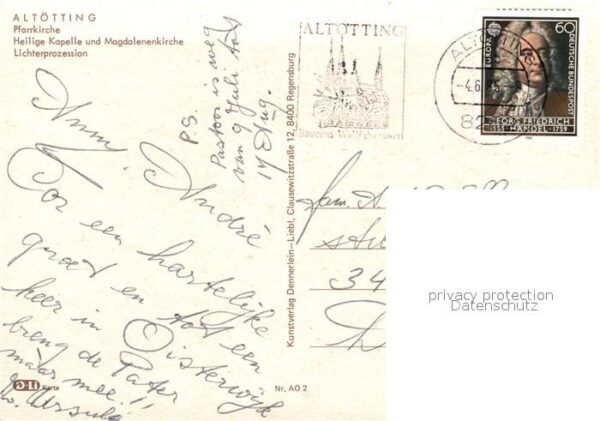 ALTÖTTING
Pfarrkirche
Heilige Kapelle und Magdalenenkirche
Lichterprozession
Ann,
André
Tot een hartelijke
groet en tot een
keer in Oisterwijk
breng de Pater
maar mee!!
Ursula
P.S.
Pastoor is weg
van 9 Juli tot
14 Aug.
Karte
Nr. AO 2
Kunstverlag Dennerlein-Liebl, Clausewitzstraße 12, 8400 Regensburg
ALTÖTTING
Bayerns Wallfahrtsort
ALTÖTTING
-4.6.
82
EUROPA
60
DEUTSCHE BUNDESPOST
GEORG FRIEDRICH
HÄNDEL·1759
fam.
34
privacy protection
Datenschutz